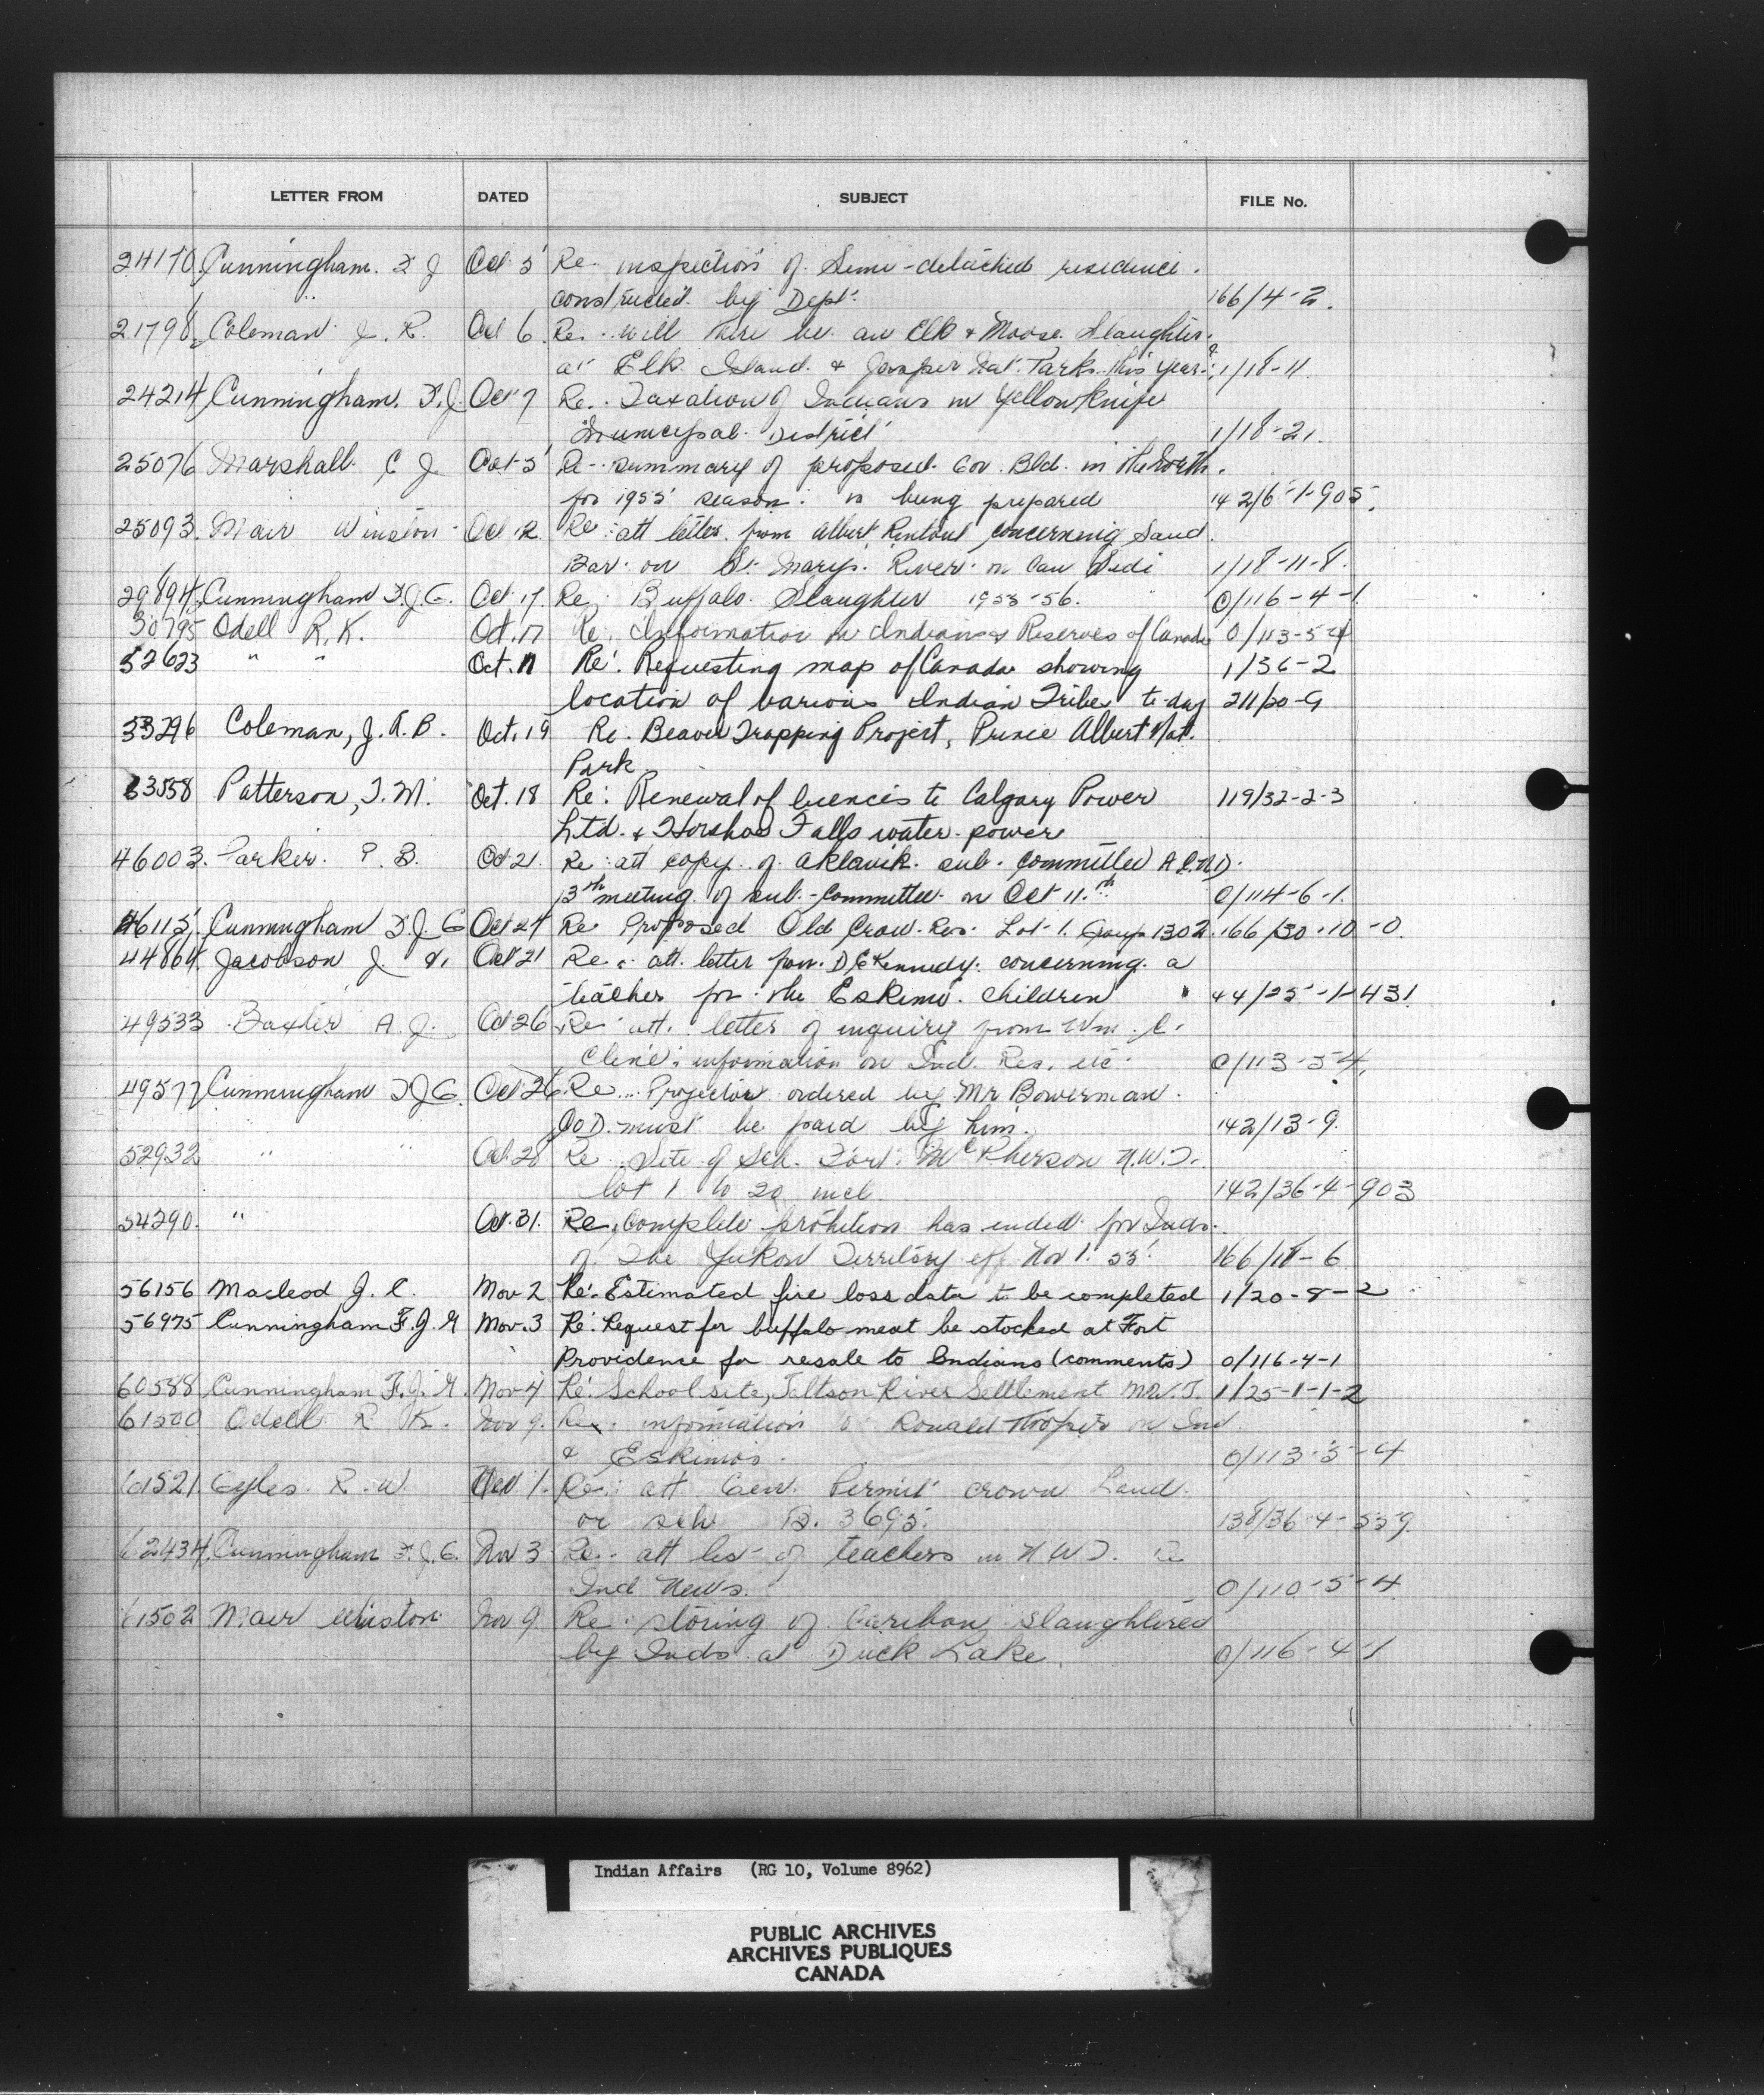 LETTER FROM DATED SUBJECT FILE No.
24170 Cunningham. F J Oct 5 Re inspection of Semi-detached residence.
constructed by Dept. 166/4-2.
21798 Coleman J. R. Oct 6 Re. will there be an Elk & Moose Slaughter
at Elk Island & Jasper Nat. Parks this year? 1/18-11
24214 Cunningham. F.J. Oct 7 Re. Taxation of Indians in Yellowknife
Municipal District 1/18-21.
25076 Marshall C J Oct 5 Re summary of proposed Gov. Bld. in the North.
for 1955 season. is being prepared 142/6-1-905.
25093. Mair Winston Oct 12. Re att letter from Albert Rintoul concerning Sand
Bar on St. Marys River on Can Side 1/18-11-8.
29894 Cunningham F.J.G. Oct 17. Re Buffalo Slaughter 1955-56. 0/116-4-1
30795 Odell R.K. Oct. 17 Re. Information on Indians & Reserves of Canada 0/113-5-4
32623 " " Oct. 11 Re: Requesting map of Canada showing 1/36-2
location of various Indian Tribes to-day 211/20-9
33296 Coleman, J.R.B. Oct. 19 Re: Beaver Trapping Project, Prince Albert Nat.
Park
33558 Patterson, T.M. Oct. 18 Re: Renewal of licences to Calgary Power 119/32-2-3
Ltd. & Horshoe Falls water-power
46003. Parker. P. B. Oct 21. Re att copy of Aklavik sub-committee A.C.N.D.
13th meeting of sub-committee on Oct 11.th 0/114-6-1.
46115. Cunningham F.J.G Oct 24 Re Proposed Old Crow Res. Lot 1. Group 1302. 166/30-10-0.
44864. Jacobson J. V. Oct 21 Re. att. letter from D E Kennedy. concerning a
teacher for the Eskimo children 44/25-1-431.
49533 Baxter A. J. Oct 26 Re att. letter of inquiry from Wm. C.
Cline: information on Ind. Res. etc. 0/113-5-4.
49577 Cunningham F J G. Oct 26. Re. Projector ordered by Mr Bowerman.
C.O.D. must be paid by him. 142/13-9.
52932 " Oct. 28 Re Site of Sch. Fort McPherson N.W.T.
lot 1 to 20 incl. 142/36-4-903
54290. " Oct. 31. Re. complete prohition has ended for Inds.
of the Yukon Territory eff Nov 1. 55. 166/18-6
56156 Macleod J. C. Nov 2 Re: Estimated fire loss data to be completed 1/20-8-2
56975 Cunningham F.J.G Nov. 3 Re: Request for buffalo meat be stocked at Fort
Providence for resale to Indians (comments) 0/116-4-1
60588 Cunningham F.J.G. Nov 4 Re: School site, Taltson River Settlement N.W.T. 1/25-1-1-2
61500 Odell R K. Nov 9. Re. information to Ronald Hooper on Ind
& Eskimos. 0/113-5-4
61521. Eyles R. W. Nov 1. Re: att Gen. Permit crown Land
or sch B. 3695. 138/36-4-559.
62434. Cunningham F.J.G. Nov 3 Re. att list of teachers in N W T. Re
Ind News. 0/110-5-4
61502 Mair Winston Nov 9 Re storing of Caribou slaughtered
by Inds at Duck Lake. 0/116-4-1
Indian Affairs (RG 10, Volume 8962)
PUBLIC ARCHIVES
ARCHIVES PUBLIQUES
CANADA